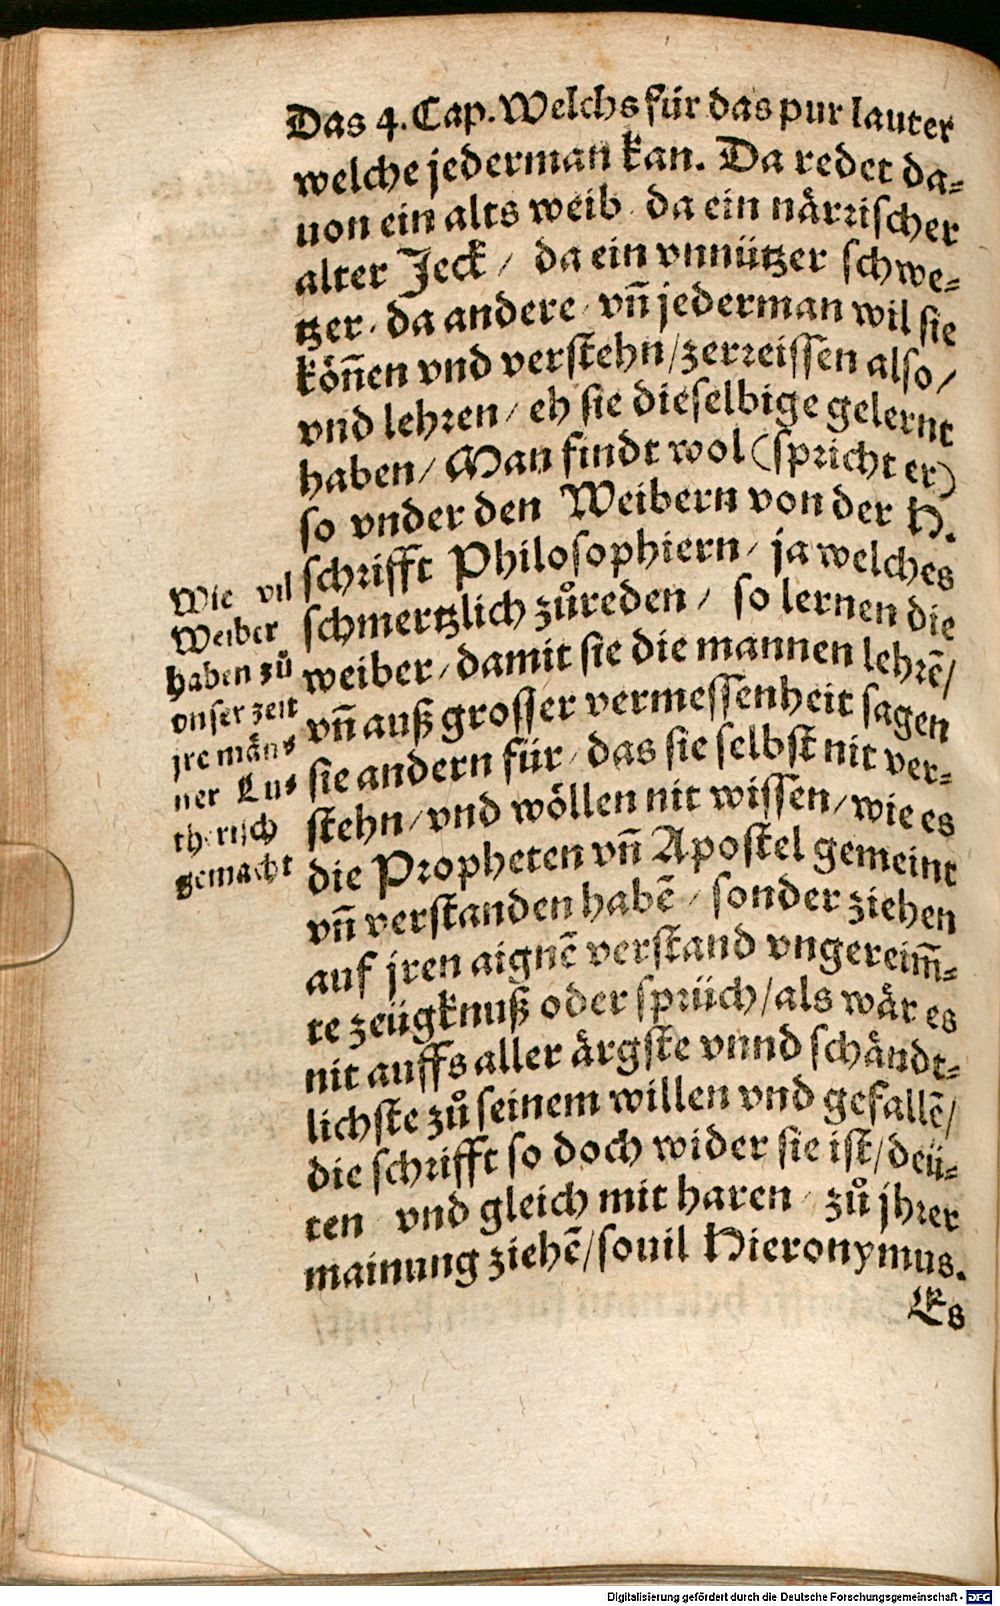 Das 4. Cap. Welchs für das pur lauter
welche jederman kan. Da redet da-
uon ein alts weib / da ein närrischer
alter Jeck / da ein vnnützer schwe-
tzer / da andere / vn̄ jederman wil sie
kön̄en vnd verstehn / zerreissen also /
vnd lehren / eh sie dieselbige gelernt
haben / Man findt wol (spricht er)
so vnder den Weibern von der H.
schrifft Philosophiern / ja welches
schmertzlich zůreden / so lernen die
weiber / damit sie die mannen lehrē /
vn̄ auß grosser vermessenheit sagen
sie andern für / das sie selbst nit ver-
stehn / vnd wöllen nit wissen / wie es
die Propheten vn̄ Apostel gemeint
vn̄ verstanden habē / sonder ziehen
auf jren aignē verstand vngereim̄-
te zeügknuß oder sprüch / als wär es
nit auffs aller ärgste vnnd schändt-
lichste zů seinem willen vnd gefallē /
die schrifft so doch wider sie ist / deü-
ten vnd gleich mit haren / zů jhrer
mainung ziehē / souil Hieronymus.
Es
Wie vil
Weiber
haben zů
vnser zeit
jre män-
ner Lu-
therisch
gemacht
Digitalisierung gefördert durch die Deutsche Forschungsgemeinschaft - DFG